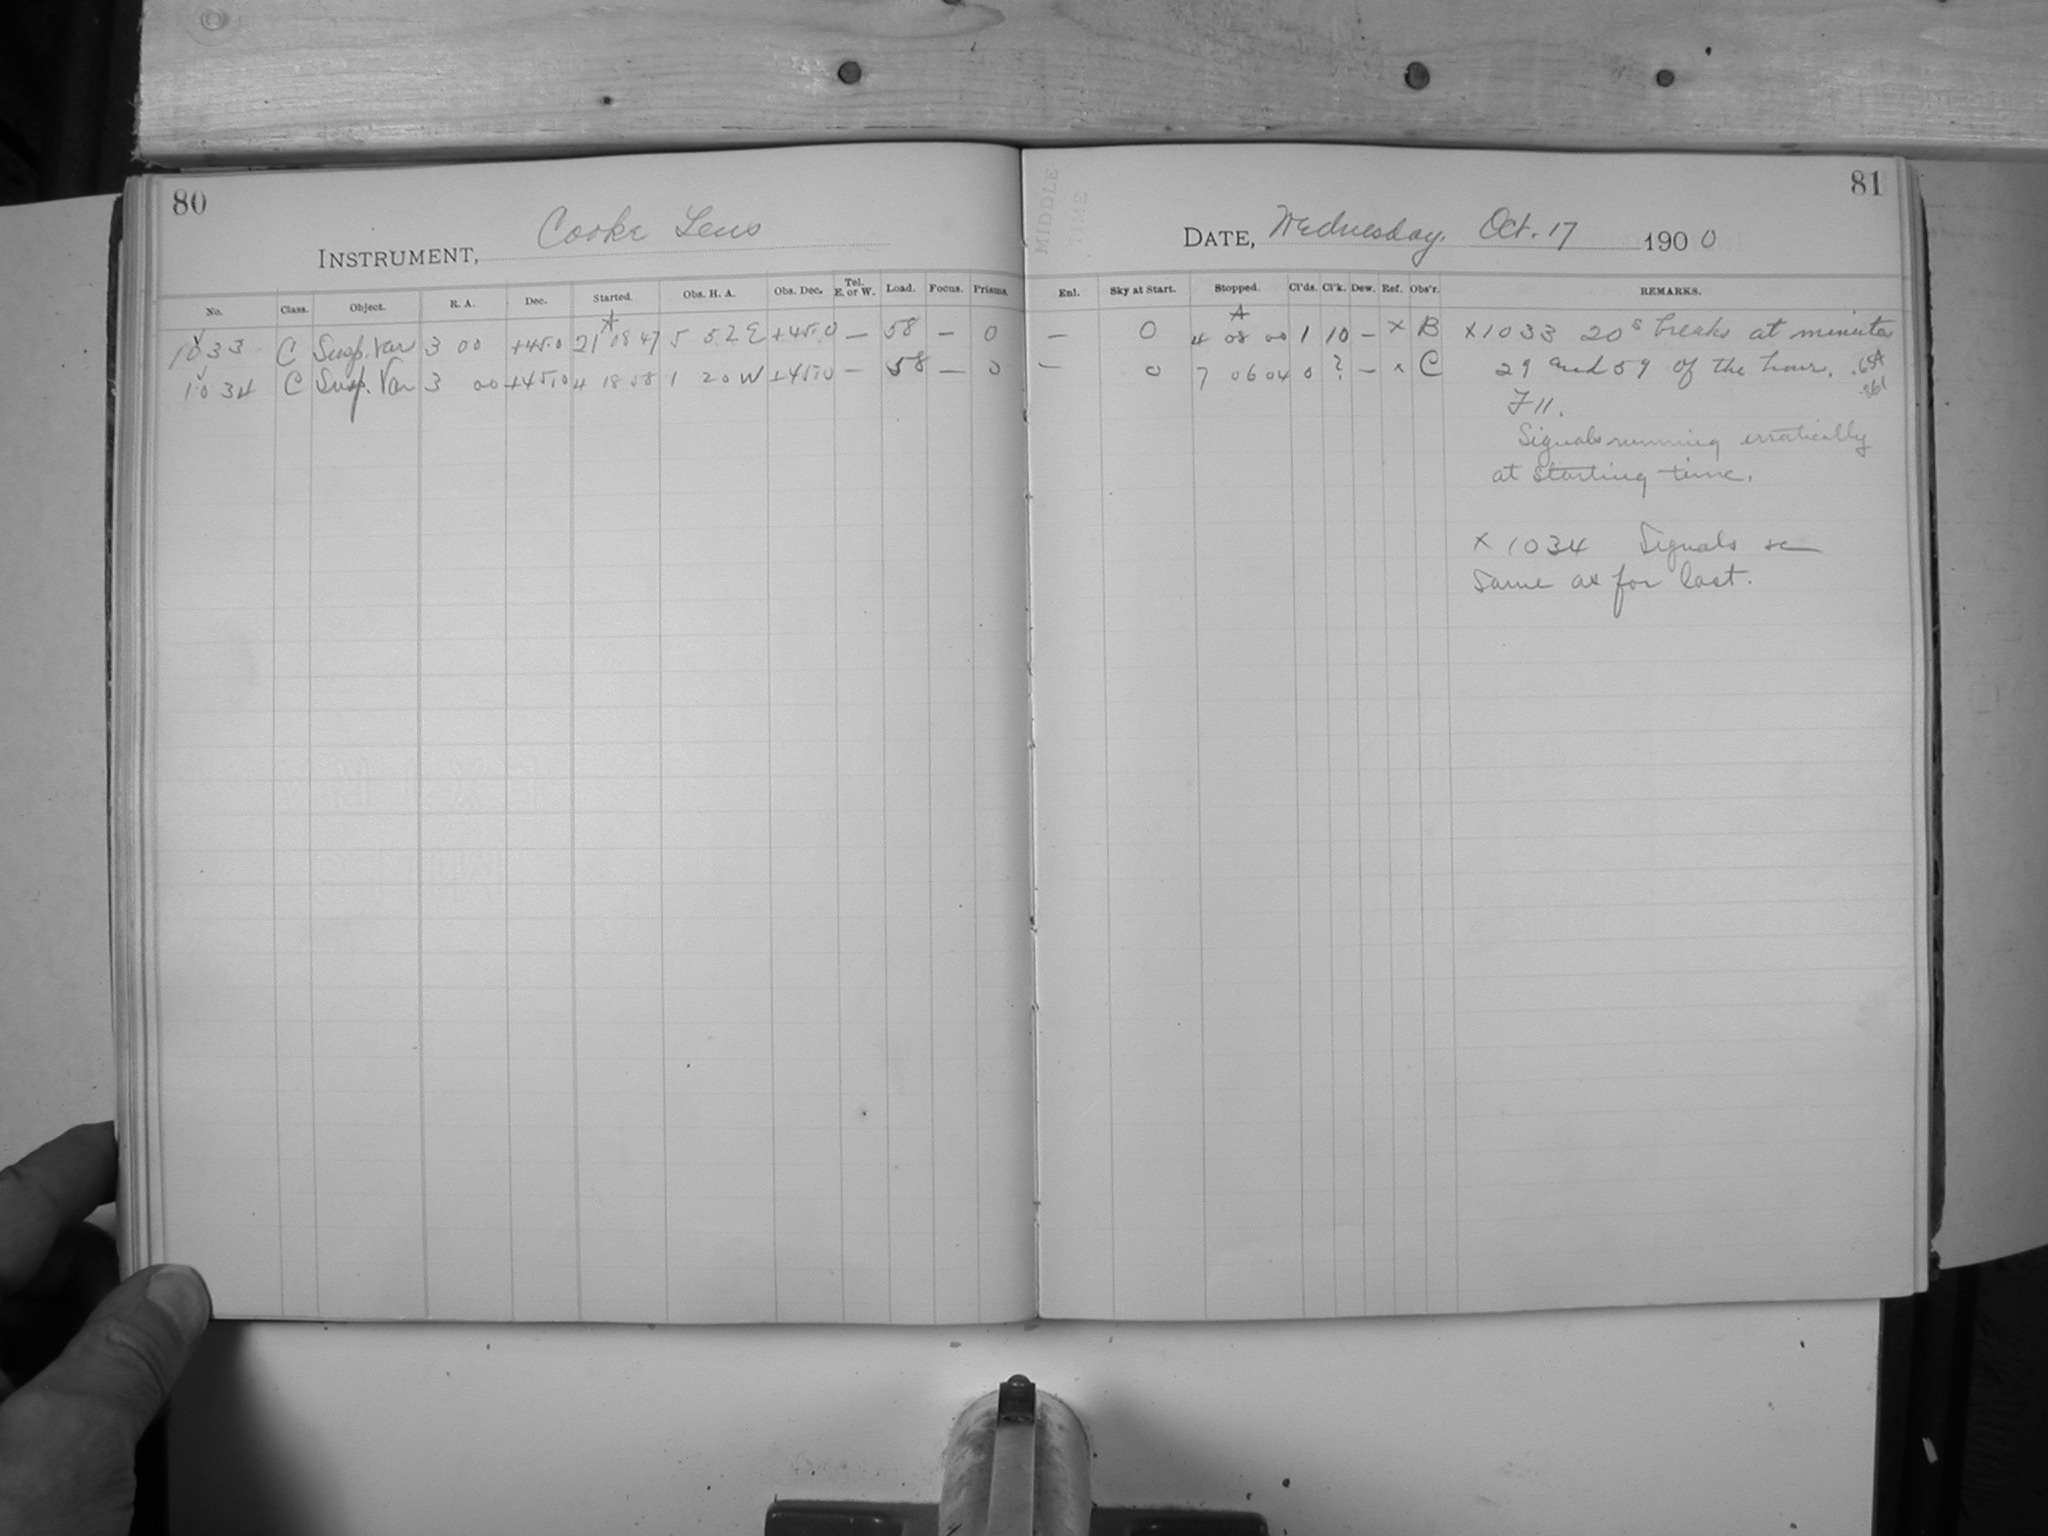 80
INSTRUMENT, Cooke Lens
No. Class. Object. R. A. Dec. Started. Obs. H. A. Obs. Dec. Tel. E. or W. Load. Focus. Prisms.
1033 C Susp. Var 3 00 +45.0 21 08 47 5 52 E +45.0 — 58 — 0
1034 C Susp. Var 3 00 +45.0 4 18 58 1 20 W +45.0 — 58 — 0
81
MIDDLE
TIME
DATE, Wednesday. Oct. 17 1900
Enl. Sky at Start. Stopped. Cl'ds. Cl'k. Dew. Ref. Obs'r. REMARKS.
— 0 4 08 00 1 10 — × B ×1033 20s breaks at minutes
— 0 7 06 04 0 ? — × C 29 and 59 of the hour.
F11.
Signals running erratically
at starting time.
× 1034 Signals
same as for last.